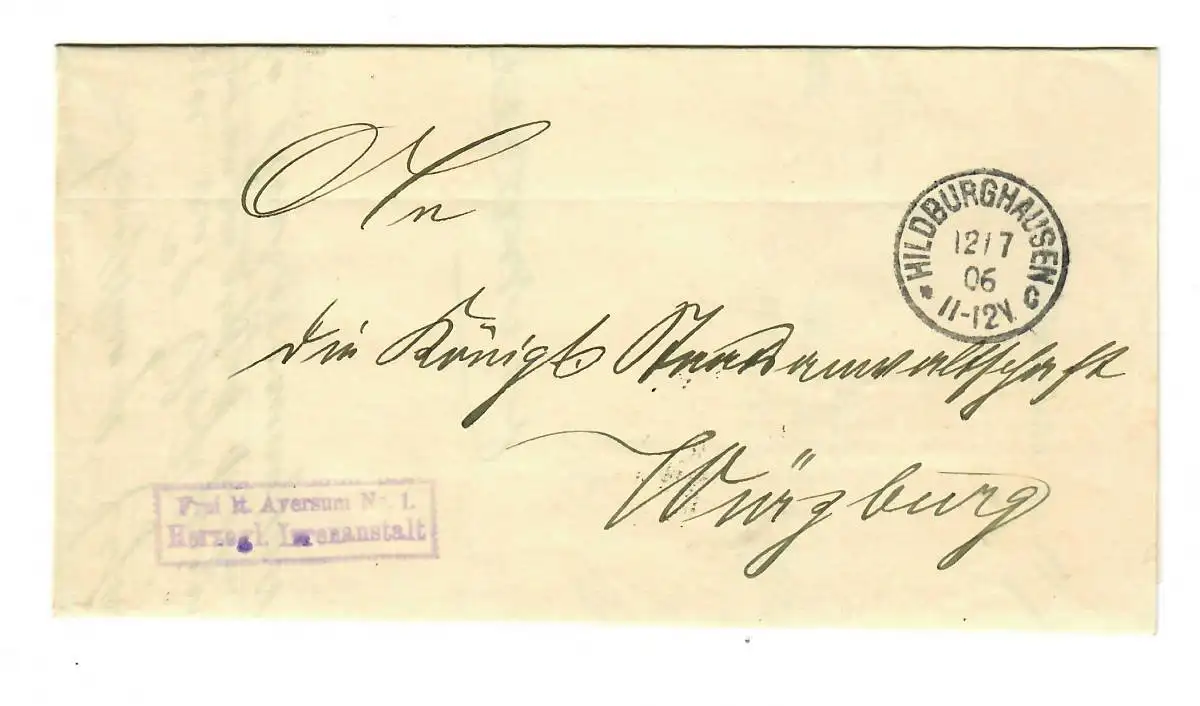 An
HILDBURGHAUSEN
12/7
06
* 11-12V. c
die Königl. Staatsanwaltschaft
Würzburg
Frei lt. Aversum No. 1.
Herzogl. Irrenanstalt